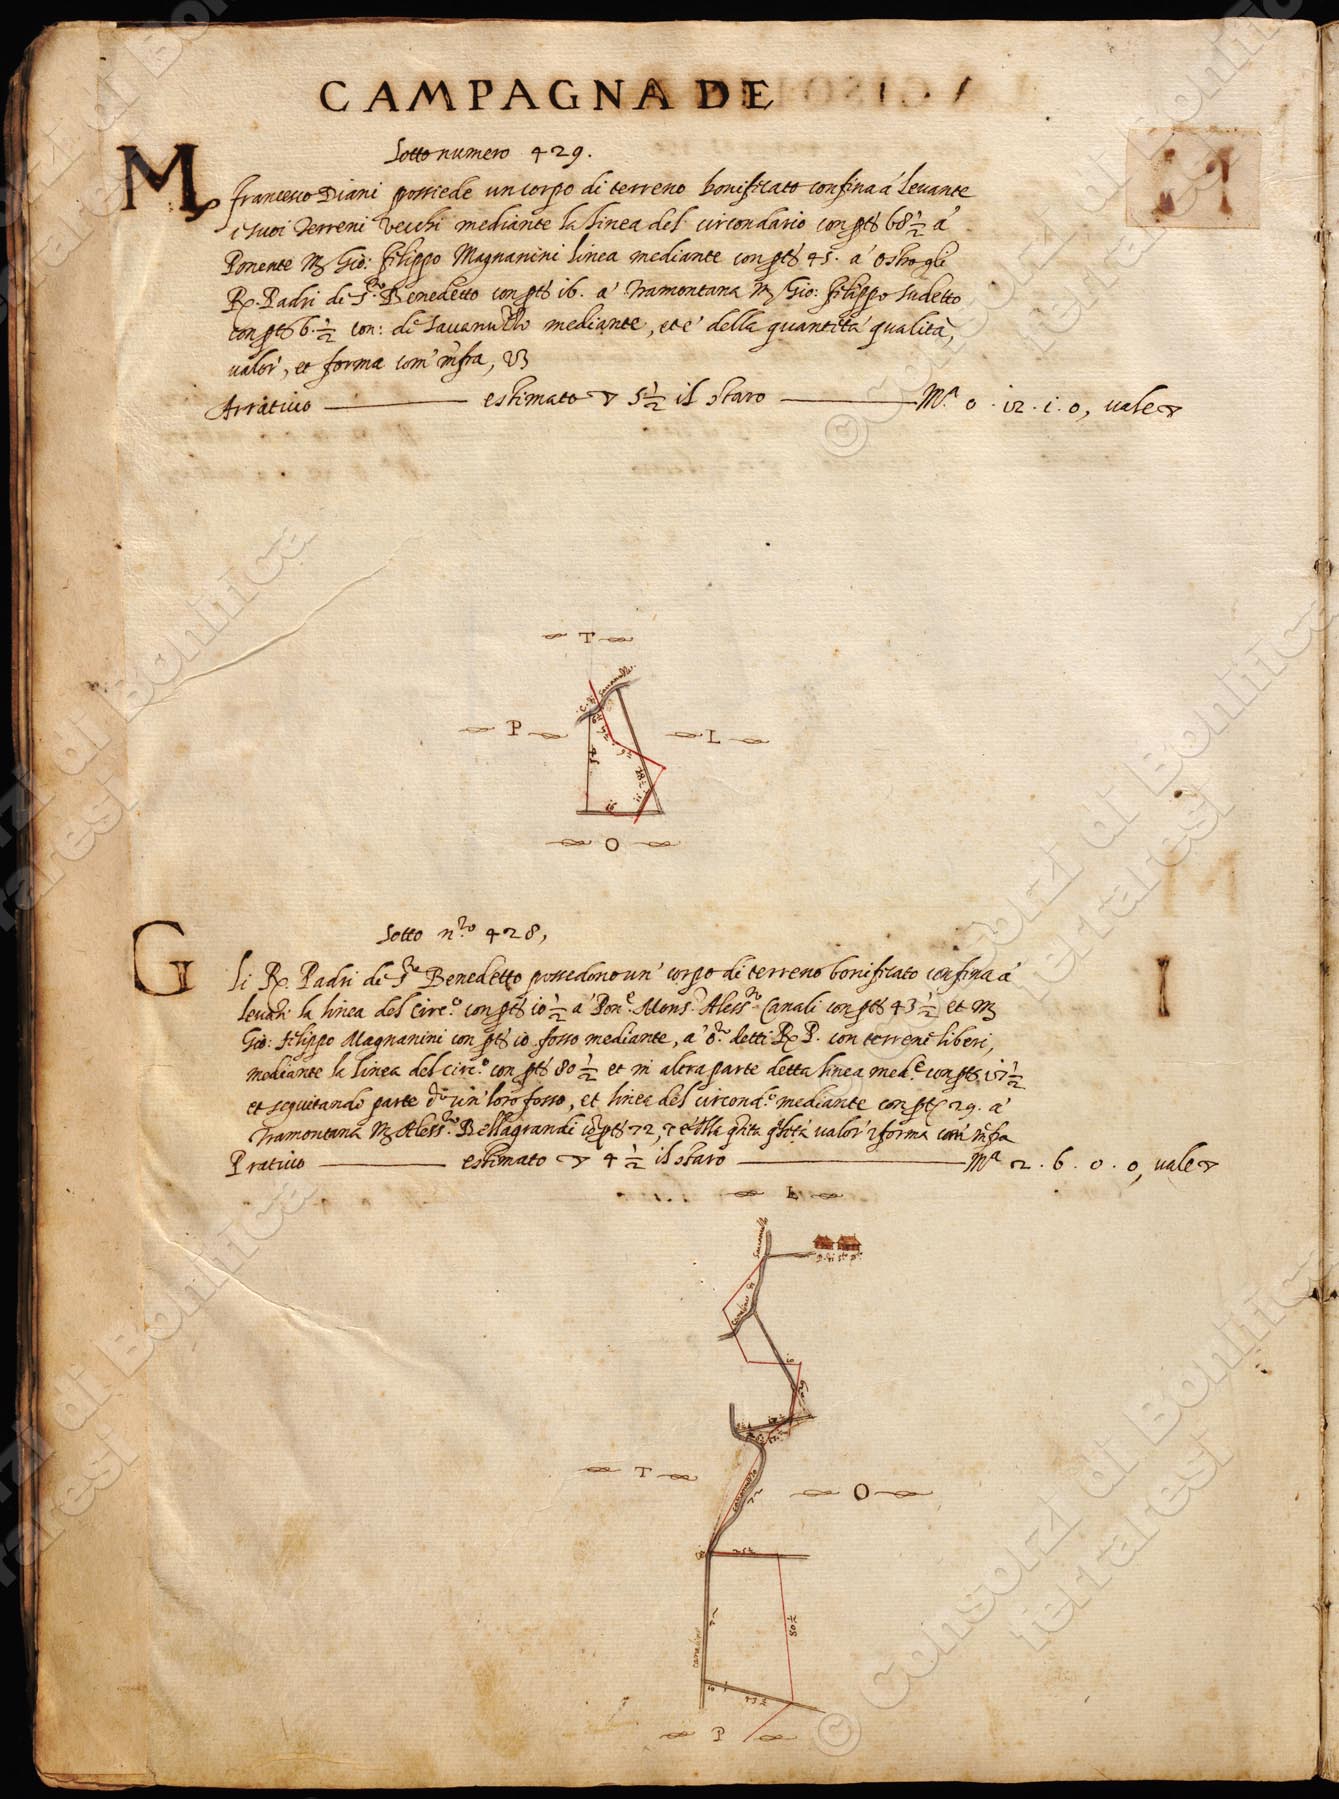 CAMPAGNA DE
Sotto numero 429.
M
Francesco Diani possiede un corpo di terreno bonificato confina á Levante
i suoi Terreni vecchi mediante la linea del circondario con 68 1/2 á
Ponente Gio: Filippo Magnanini linea mediante con 45. á Ostro gli
R. Padri di S.to Benedetto con 16. á Tramontana Gio: Filippo sudetto
con 6. 1/2 con: di mediante, et é della quantitá qualitá,
valór, et forma com' infra,
Arrativo estimato 5 1/2 il staro M.a 0. 12. 1. 0, vale
T
P
L
54
16
28 1/2
11
O
Sotto n.ro 428,
G
li R. Padri de S.to Benedetto possedono un' corpo di terreno bonificato confina á
Levan: la linea del Circ.o con 10 1/2 á Pon.e Mons.r Aless.ro Canali con 43 1/2 et
Gio: Filippo Magnanini con 10 fosso mediante, á detti R. P. con terreni liberi,
mediante la linea del circ.o con 80 1/2 et in altra parte detta linea med.e con 17 1/2
et sequitando parte un' loro fosso, et linea del circond.o mediante con 29. á
Tramontana Aless.ro Bellagrandi 72, valór forma com' infra
Prativo estimato 4 1/2 il staro M.a 2. 6. 0. 0, vale
L
10
T
O
72
25 1/2
80 1/2
10
43 1/2
P
© Consorzi di Bonifica
ferraresi